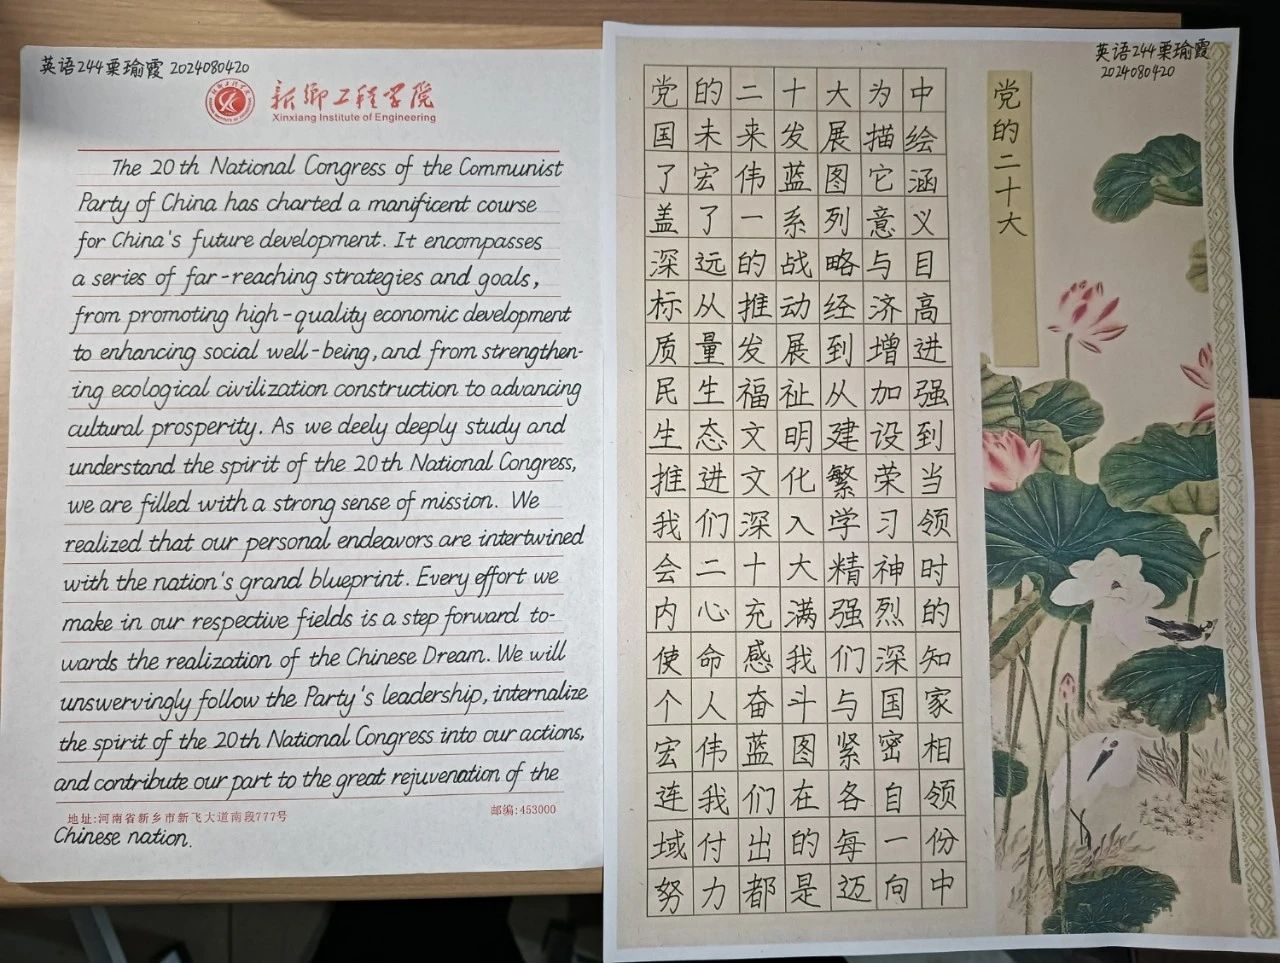 英语244栗瑜霞 2024080420
新乡工程学院
Xinxiang Institute of Engineering
The 20th National Congress of the Communist
Party of China has charted a manificent course
for China's future development. It encompasses
a series of far-reaching strategies and goals,
from promoting high-quality economic development
to enhancing social well-being, and from strengthen-
ing ecological civilization construction to advancing
cultural prosperity. As we deely deeply study and
understand the spirit of the 20th National Congress,
we are filled with a strong sense of mission. We
realized that our personal endeavors are intertwined
with the nation's grand blueprint. Every effort we
make in our respective fields is a step forward to-
wards the realization of the Chinese Dream. We will
unswervingly follow the Party's leadership, internalize
the spirit of the 20th National Congress into our actions,
and contribute our part to the great rejuvenation of the
地址:河南省新乡市新飞大道南段777号 邮编:453000
Chinese nation.
英语244栗瑜霞
2024080420
党的二十大
党的二十大为中
国未来发展描绘
了宏伟蓝图它涵
盖了一系列意义
深远的战略与目
标从推动经济高
质量发展到增进
民生福祉从加强
生态文明建设到
推进文化繁荣当
我们深入学习领
会二十大精神时
内心充满强烈的
使命感我们深知
个人奋斗与国家
宏伟蓝图紧密相
连我们在各自领
域付出的每一份
努力都是迈向中